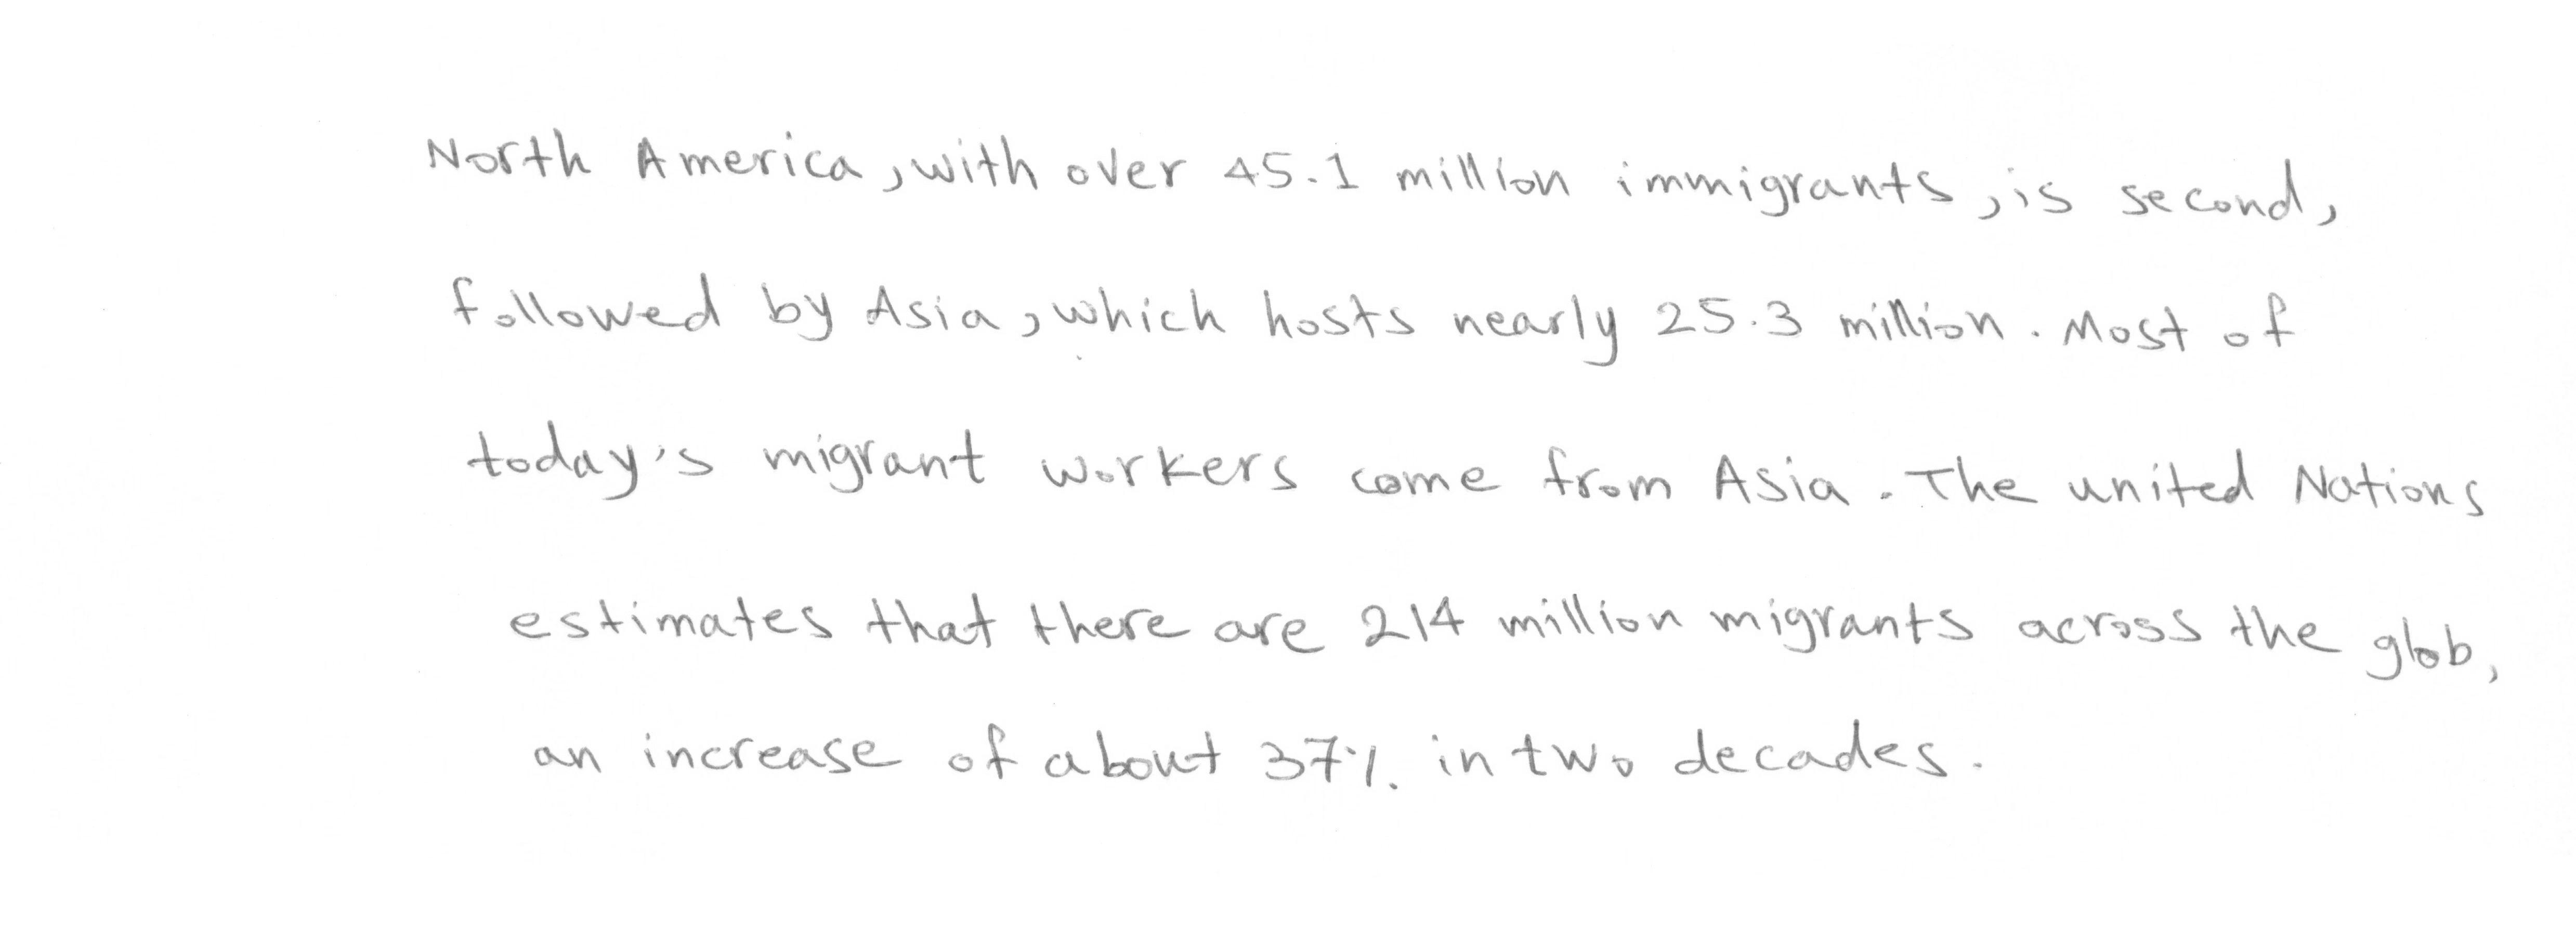 North America, with over 45.1 million immigrants, is second,
followed by Asia, which hosts nearly 25.3 million. Most of
today's migrant workers come from Asia. The united Nations
estimates that there are 214 million migrants across the glob,
an increase of about 37% in two decades.